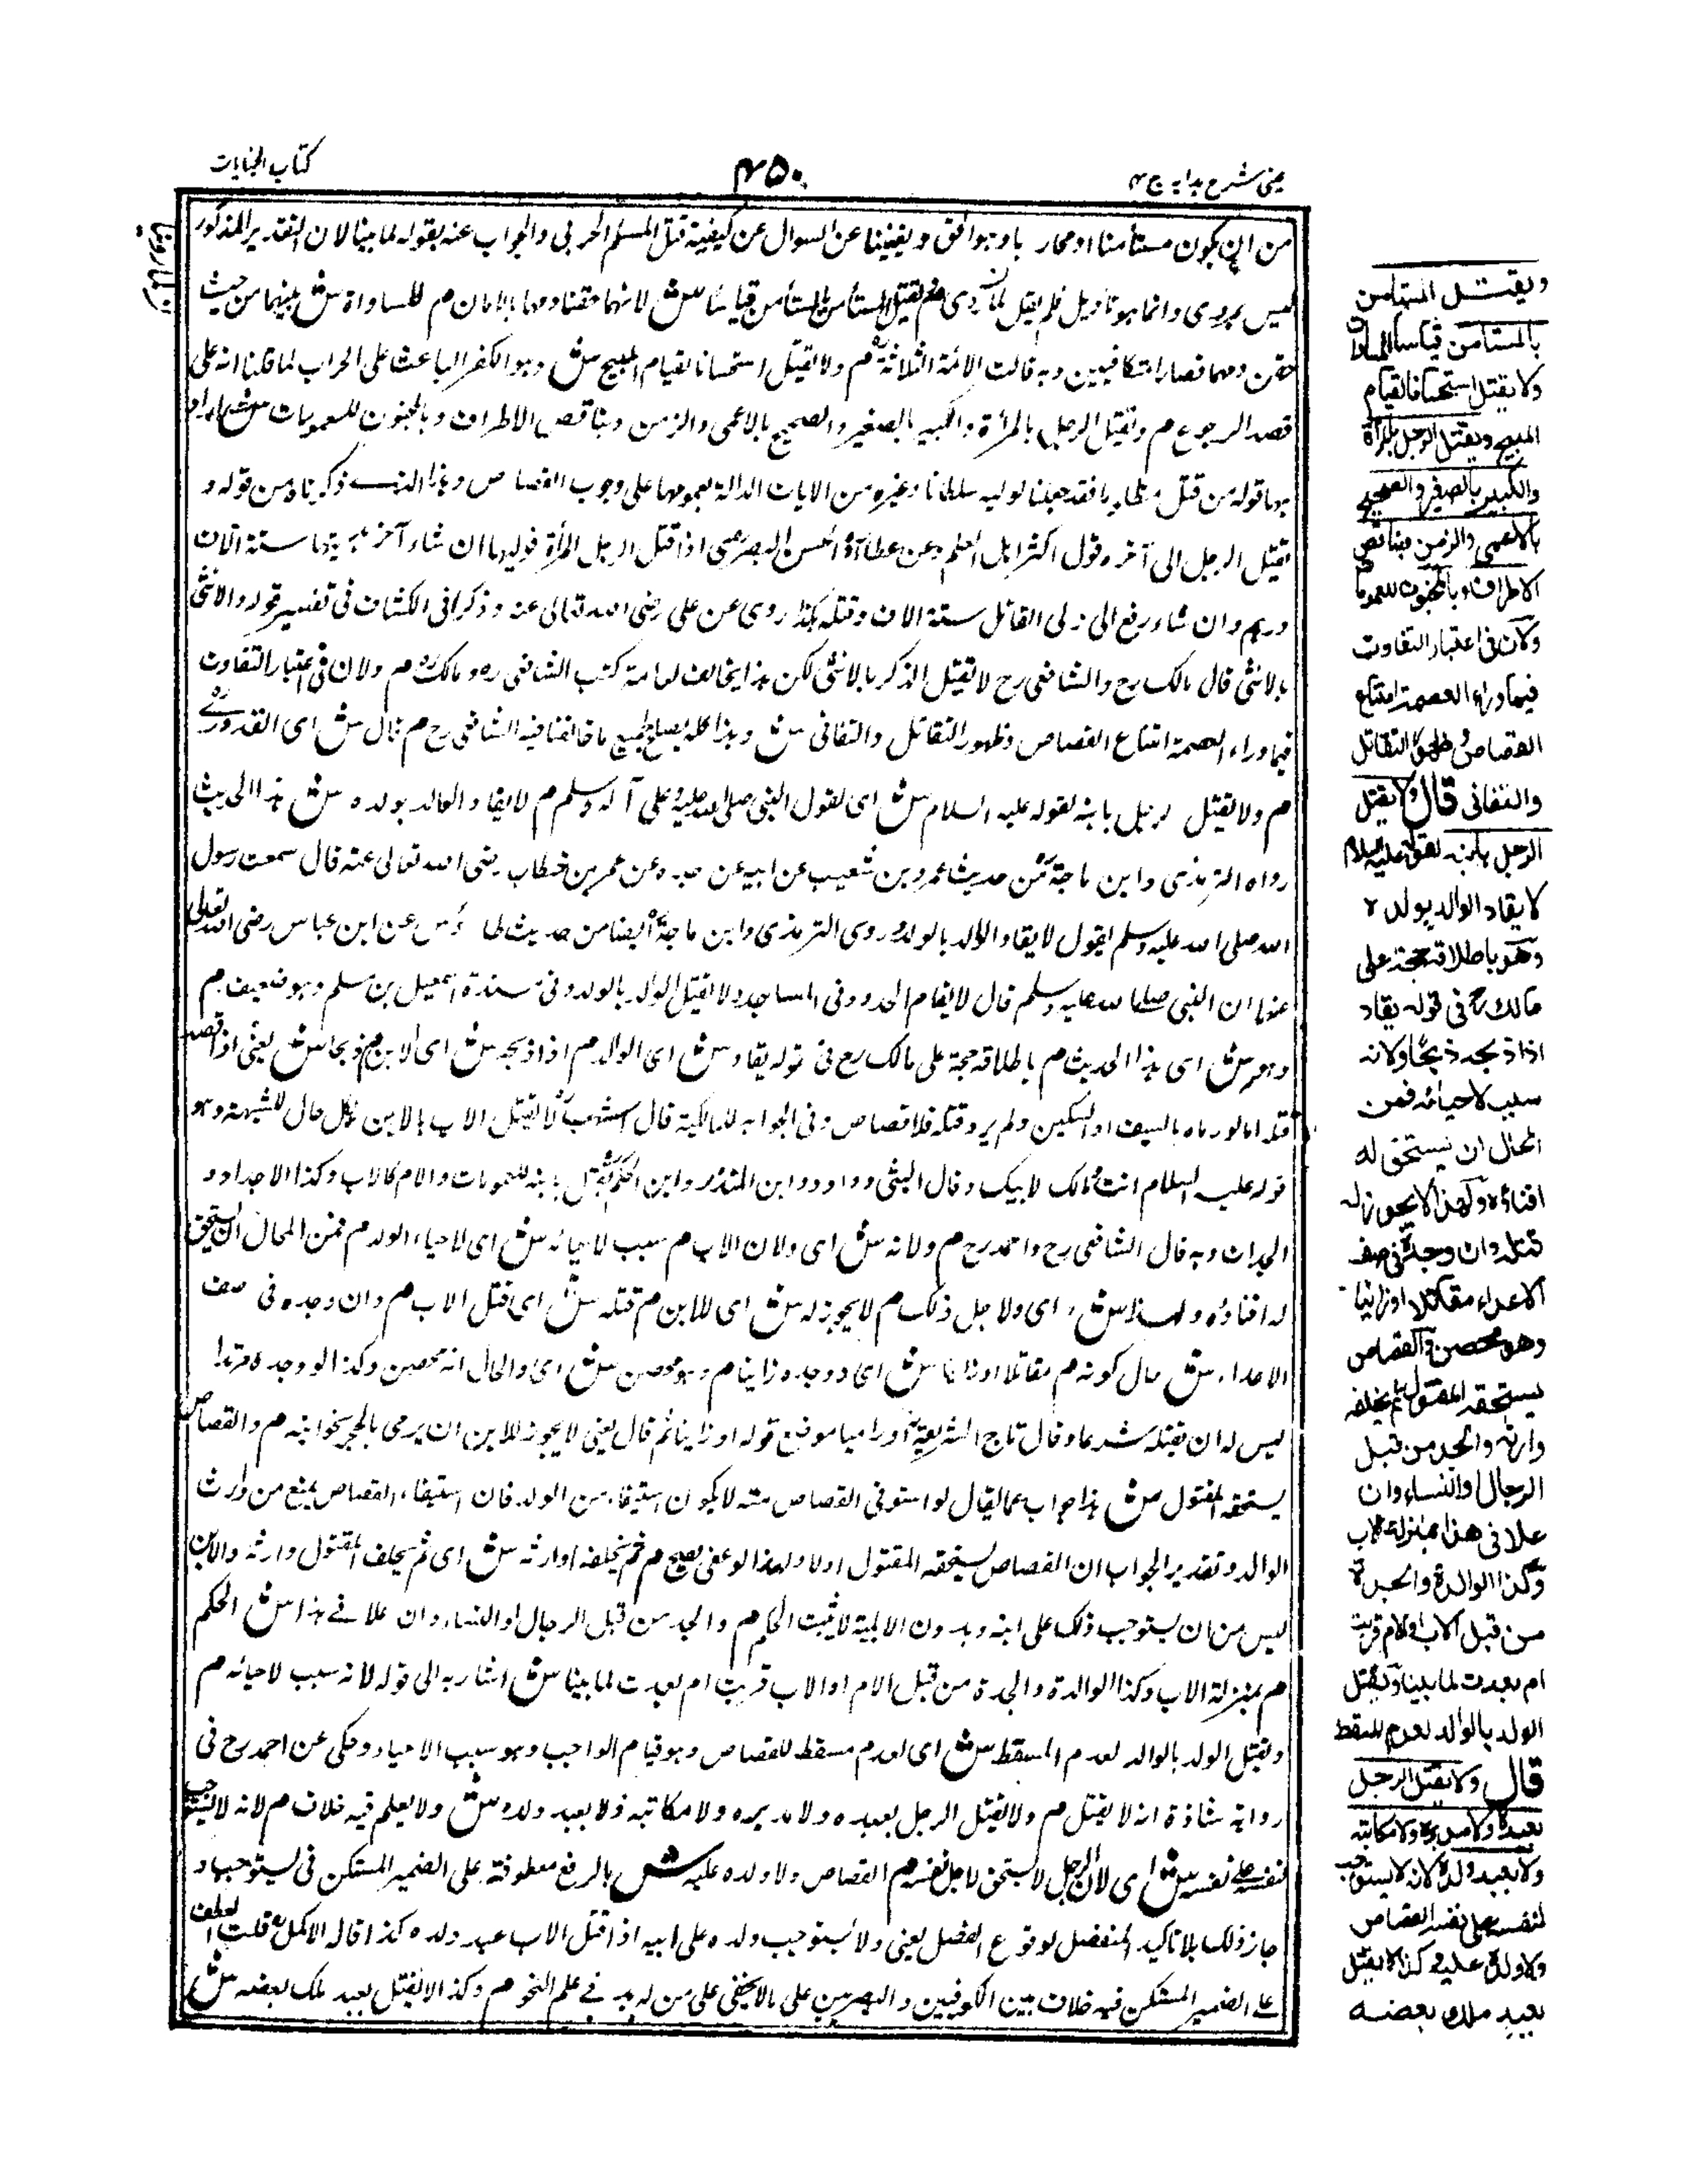 عینی شرح ہدایہ ج ۴
۴۵۰
کتاب الجنایات
من ان یکون مستأمنا او محاربا وہو اوفق ویغنینا عن السوال عن کیفیۃ قتل المسلم الحربی والجواب عنہ بقولہ لما بینا لان التقدیر المذکور
لیس بمروی وانما ہو تاویل فلم یقل لما روی م ویقتل المستأمن بالمستأمن قیاسا ش لانہما حقنا دمہما بالامان م للمساواۃ ش بینہما من حیث
حقن دمہما فصارا متکافیین وبہ قالت الائمۃ الثلاثۃ م ولا یقتل استحسانا لقیام المبیح ش وہو الکفر الباعث علی الحراب لما قلنا انہ علی
قصد الرجوع م ویقتل الرجل بالمرأۃ والکبیر بالصغیر والصحیح بالاعمی والزمن وبناقص الاطراف وبالمجنون للعمومات ش اراد
بہا قولہ من قتل مظلوما فقد جعلنا لولیہ سلطانا وغیرہ من الایات الدالۃ بعمومہا علی وجوب القصاص وہذا الذی ذکرناہ من قولہ و
یقتل الرجل الی آخرہ قول اکثر اہل العلم وعن عطاء والحسن البصری اذا قتل الرجل المرأۃ فولیہا ان شاء آخذ دیتہا ستۃ الاف
درہم وان شاء رفع الی ولی القاتل ستۃ الاف وقتلہ ہکذا روی عن علی رضی اللہ تعالی عنہ وذکر فی الکشاف فی تفسیر قولہ والانثی
بالانثی قال مالک رح والشافعی رح لا یقتل الذکر بالانثی لکن ہذا یخالف لعامۃ کتب الشافعی رہ ومالک رہ م ولان فی اعتبار التفاوت
فیما وراء العصمۃ امتناع القصاص وظہور التقاتل والتفانی ش وہذا کلہ یصلح لجمیع ما خالفنا فیہ الشافعی رح م قال ش ای القدوری
م ولا یقتل الرجل بابنہ لقولہ علیہ السلام ش ای لقول النبی صلی اللہ علیہ وعلی آلہ وسلم م لا یقاد الوالد بولدہ ش ہذا الحدیث
رواہ الترمذی وابن ماجۃ من حدیث عمرو بن شعیب عن ابیہ عن جدہ عن عمر بن خطاب رضی اللہ تعالی عنہ قال سمعت رسول
اللہ صلی اللہ علیہ وسلم یقول لا یقاد الوالد بالولد وروی الترمذی وابن ماجۃ ایضا من حدیث طاؤس عن ابن عباس رضی اللہ تعالی
عنہما ان النبی صلی اللہ علیہ وسلم قال لا یقام الحدود فی المساجد ولا یقتل الوالد بالولد وفی سندہ اسمعیل بن مسلم وہو ضعیف م
وہو ش ای ہذا الحدیث م باطلاقہ حجۃ علی مالک رح فی قولہ یقاد ش ای الوالد م اذا ذبحہ ش ای الابن م ذبحا ش یعنی اذا قصد
قتلہ اما لو رماہ بالسیف او السکین ولم یرد قتلہ فلا قصاص وفی الجواہر للمالکیۃ قال اشہب لا یقتل الاب بالابن بکل حال للشبہۃ وہو
قولہ علیہ السلام انت ومالک لابیک وقال البتی وداود وابن المنذر وابن الحکم یقتل بابنہ للعمومات والام کالاب وکذا الاجداد و
الجدات وبہ قال الشافعی رح واحمد رح م ولانہ ش ای ولان الاب م سبب لاحیائہ ش ای لاحیاء الولد م فمن المحال ان یستحق
لہ افناؤہ ولہذا ش ای ولاجل ذلک م لا یجوز لہ ش ای للابن م قتلہ ش ای قتل الاب م وان وجدہ فی صف
الاعداء ش حال کونہ م مقاتلا او زانیا ش ای او وجدہ زانیا م وہو محصن ش ای والحال انہ محصن وکذا لو وجدہ مرتدا
لیس لہ ان یقتلہ شرعا وقال تاج الشریعۃ او رامیا موضع قولہ او زانیا ثم قال یعنی لا یجوز للابن ان یرمی بالحجر نحو ابیہ م والقصاص
یستحقہ المقتول ش ہذا جواب عما یقال لو استوفی القصاص منہ لا یکون استیفاء من الولد فان استیفاء القصاص یمنع من وارث
الوالد وتقدیر الجواب ان القصاص یستحقہ المقتول اولا ولہذا لو عفی یصح م ثم یخلفہ وارثہ ش ای ثم یخلف المقتول وارثہ والابن
لیس من ان یستوجب ذلک علی ابنہ وبدون الاہلیۃ لا یثبت الحکم م والجد من قبل الرجال او النساء وان علا فی ہذا ش الحکم
م بمنزلۃ الاب وکذا الوالدۃ والجدۃ من قبل الام او الاب قربت ام بعدت لما بینا ش اشار بہ الی قولہ لانہ سبب لاحیائہ م
ویقتل الولد بالوالد لعدم المسقط ش ای لعدم مسقط للقصاص وہو قیام الواجب وہو سبب الاحیاء وحکی عن احمد رح فی
روایۃ شاذۃ انہ لا یقتل م ولا یقتل الرجل بعبدہ ولا مدبرہ ولا مکاتبہ ولا بعبد ولدہ ش ولا یعلم فیہ خلاف م لانہ لا یستوجب
لنفسہ علی نفسہ ش ای لان الرجل لا یستحق لاجل نفسہ م القصاص ولا ولدہ علیہ ش بالرفع معطوفۃ علی الضمیر المستکن فی یستوجب و
جاز ذلک بلا تاکید المنفصل لوقوع الفصل یعنی ولا یستوجب ولدہ علی ابیہ اذا قتل الاب عبد ولدہ کذا قالہ الاکمل قلت العطف
علی الضمیر المستکن فیہ خلاف بین الکوفیین والبصریین علی ما لا یخفی علی من لہ ید فی علم النحو م وکذا لا یقتل بعبد ملک بعضہ ش
ویقتل المستامن
بالمستامن قیاسا للمساواۃ
ولا یقتل استحسانا لقیام
المبیح ویقتل الرجل بالمرأۃ
والکبیر بالصغیر والصحیح
بالاعمی والزمن وبناقص
الاطراف وبالمجنون للعمومات
ولان فی اعتبار التفاوت
فیما وراء العصمۃ امتناع
القصاص وظہور التقاتل
والتفانی قال ولا یقتل
الرجل بابنہ لقولہ علیہ السلام
لا یقاد الوالد بولدہ
وھو باطلاقہ حجۃ علی
مالک رح فی قولہ یقاد
اذا ذبحہ ذبحًا ولانہ
سبب لاحیائہ فمن
المحال ان یستحق لہ
افناؤہ ولھذا لا یجوز لہ
قتلہ وان وجدہ فی صف
الاعداء مقاتلا او زانیا
وھو محصن والقصاص
یستحقہ المقتول ثم یخلفہ
وارثہ والجد من قبل
الرجال والنساء وان
علا فی ھذا بمنزلۃ الاب
وکذا الوالدۃ والجدۃ
من قبل الاب او الام قربت
ام بعدت لما بینا ویقتل
الولد بالوالد لعدم المسقط
قال ولا یقتل الرجل
بعبدہ ولا مدبرہ ولا مکاتبہ
ولا بعبد ولدہ لانہ لا یستوجب
لنفسہ علی نفسہ القصاص
ولا ولدہ علیہ وکذا لا یقتل
بعبد ملک بعضہ